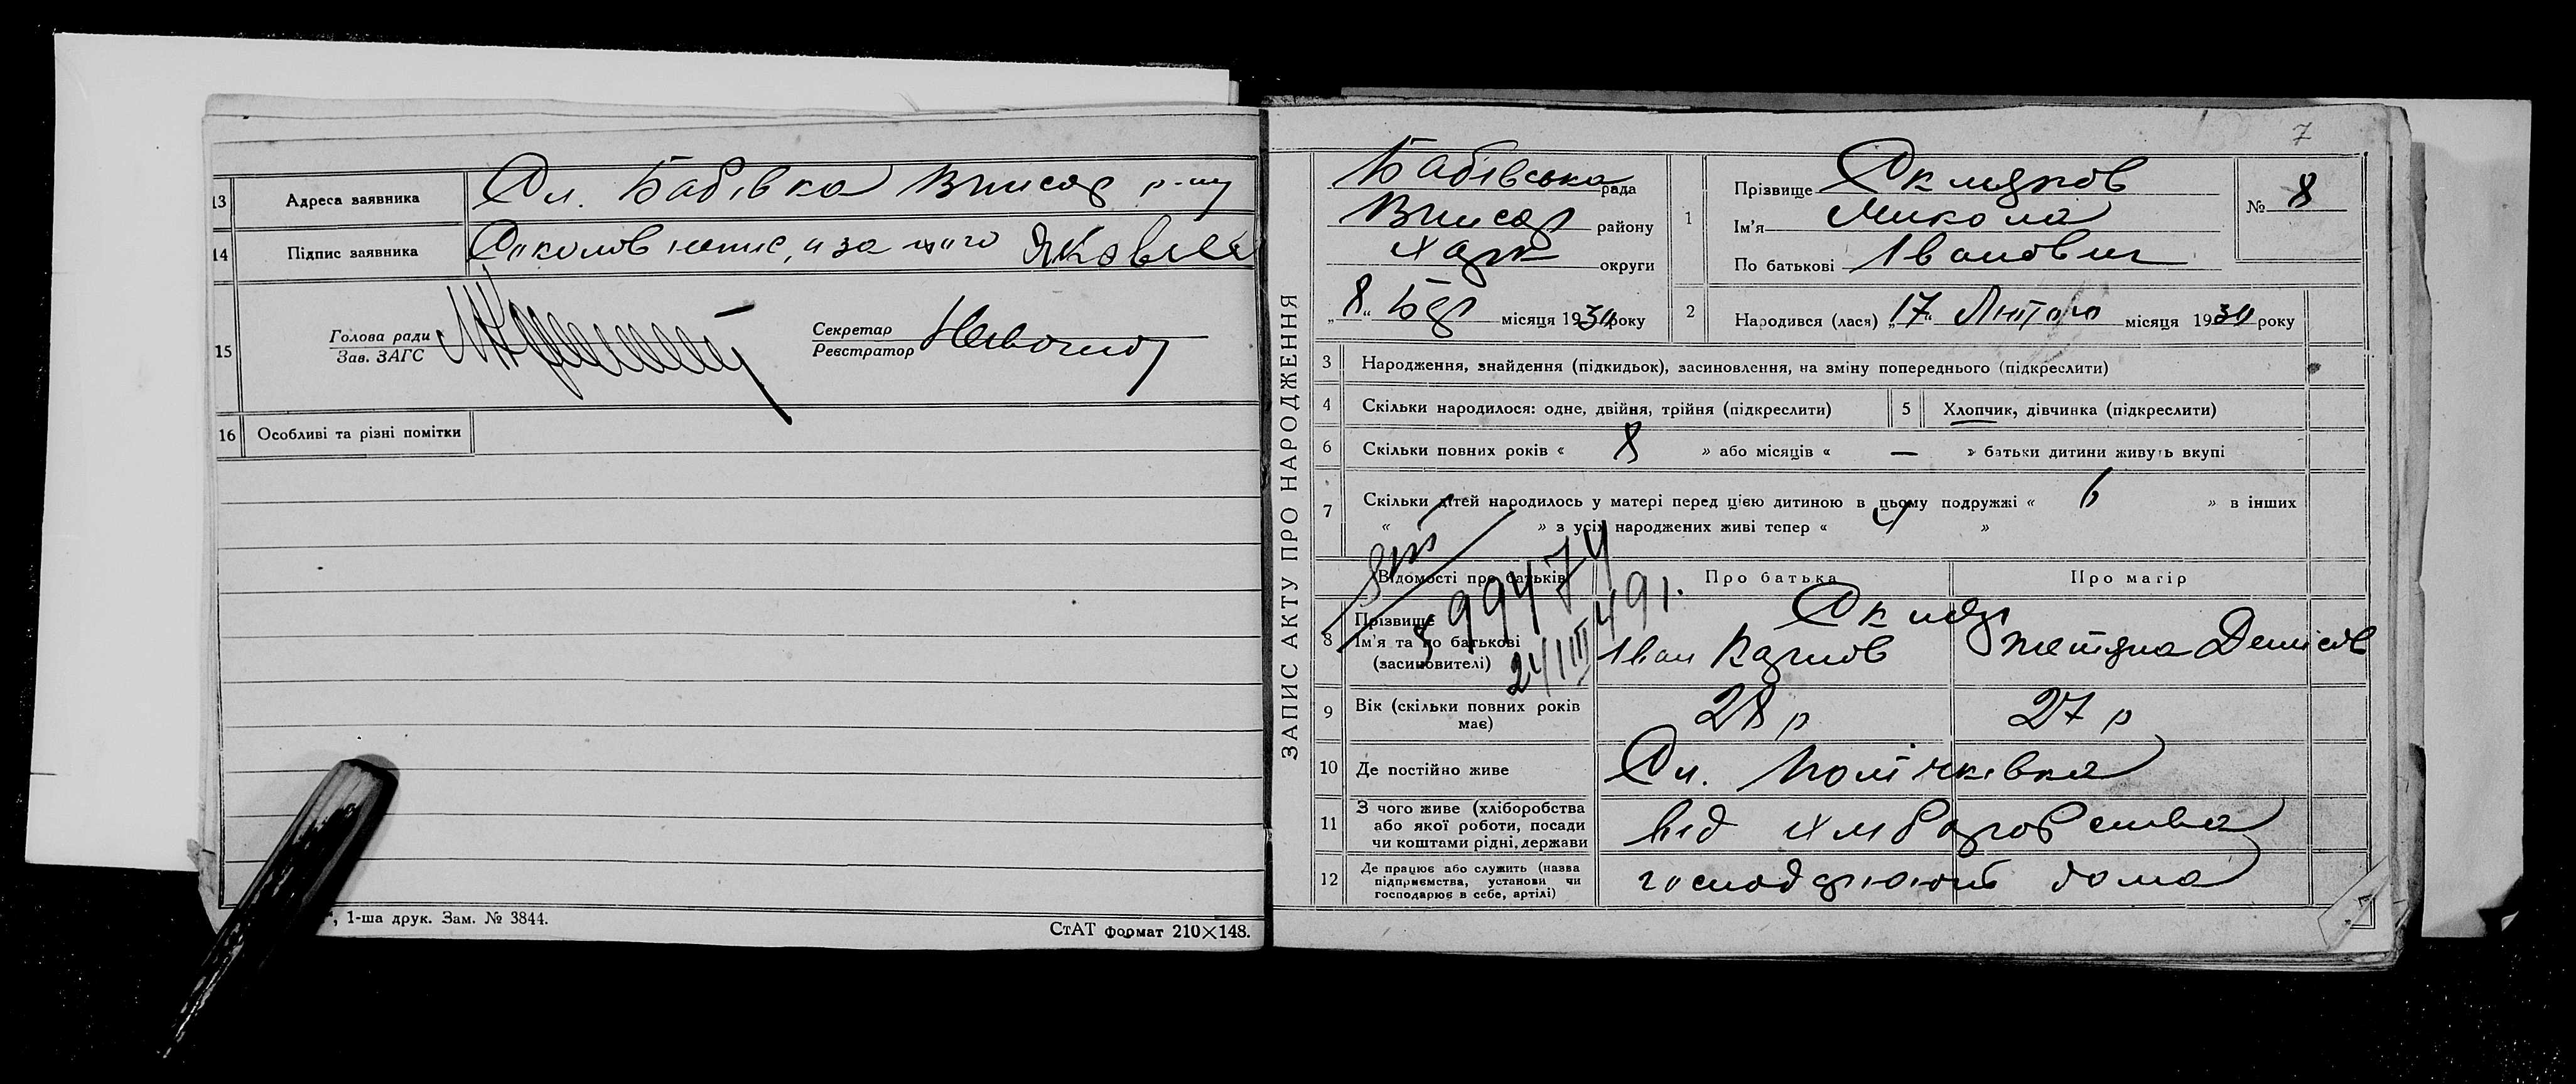 13 Адреса заявника Сл. Бабівка р-ну
14 Підпис заявника непис, а за
15 Голова ради
Зав. ЗАГС
Секретар
Реєстратор
16 Особливі та різні помітки
1-ша друк. Зам. № 3844.
СтАТ формат 210×148.
7
ЗАПИС АКТУ ПРО НАРОДЖЕННЯ
Бабівська рада
району
Харк округи
„8“ Бер місяця 1930 року
1 Прізвище
Ім'я Микола
По батькові Іванович
№ 8
2 Народився (лася) „17“ Лютого місяця 1930 року
3 Народження, знайдення (підкидьок), засиновлення, на зміну попереднього (підкреслити)
4 Скільки народилося: одне, двійня, трійня (підкреслити)
5 Хлопчик, дівчинка (підкреслити)
6 Скільки повних років « 8 » або місяців « — » батьки дитини живуть вкупі
7 Скільки дітей народилось у матері перед цією дитиною в цьому подружжі « 6 » в інших
« » з усіх народжених живі тепер « 4 »
Відомості про батьків Про батька Про матір
8 Прізвище
Ім'я та по батькові
(засиновителі)
Іван Карпов
Тетяна Денисов
24/III
491.
9 Вік (скільки повних років
має)
28 р 27 р
10 Де постійно живе Сл.
11 З чого живе (хліборобства
або якої роботи, посади
чи коштами рідні, держави
від хліборобства
12 Де працює або служить (назва
підприємства, установи чи
господарює в себе, артілі)
господарюють дома